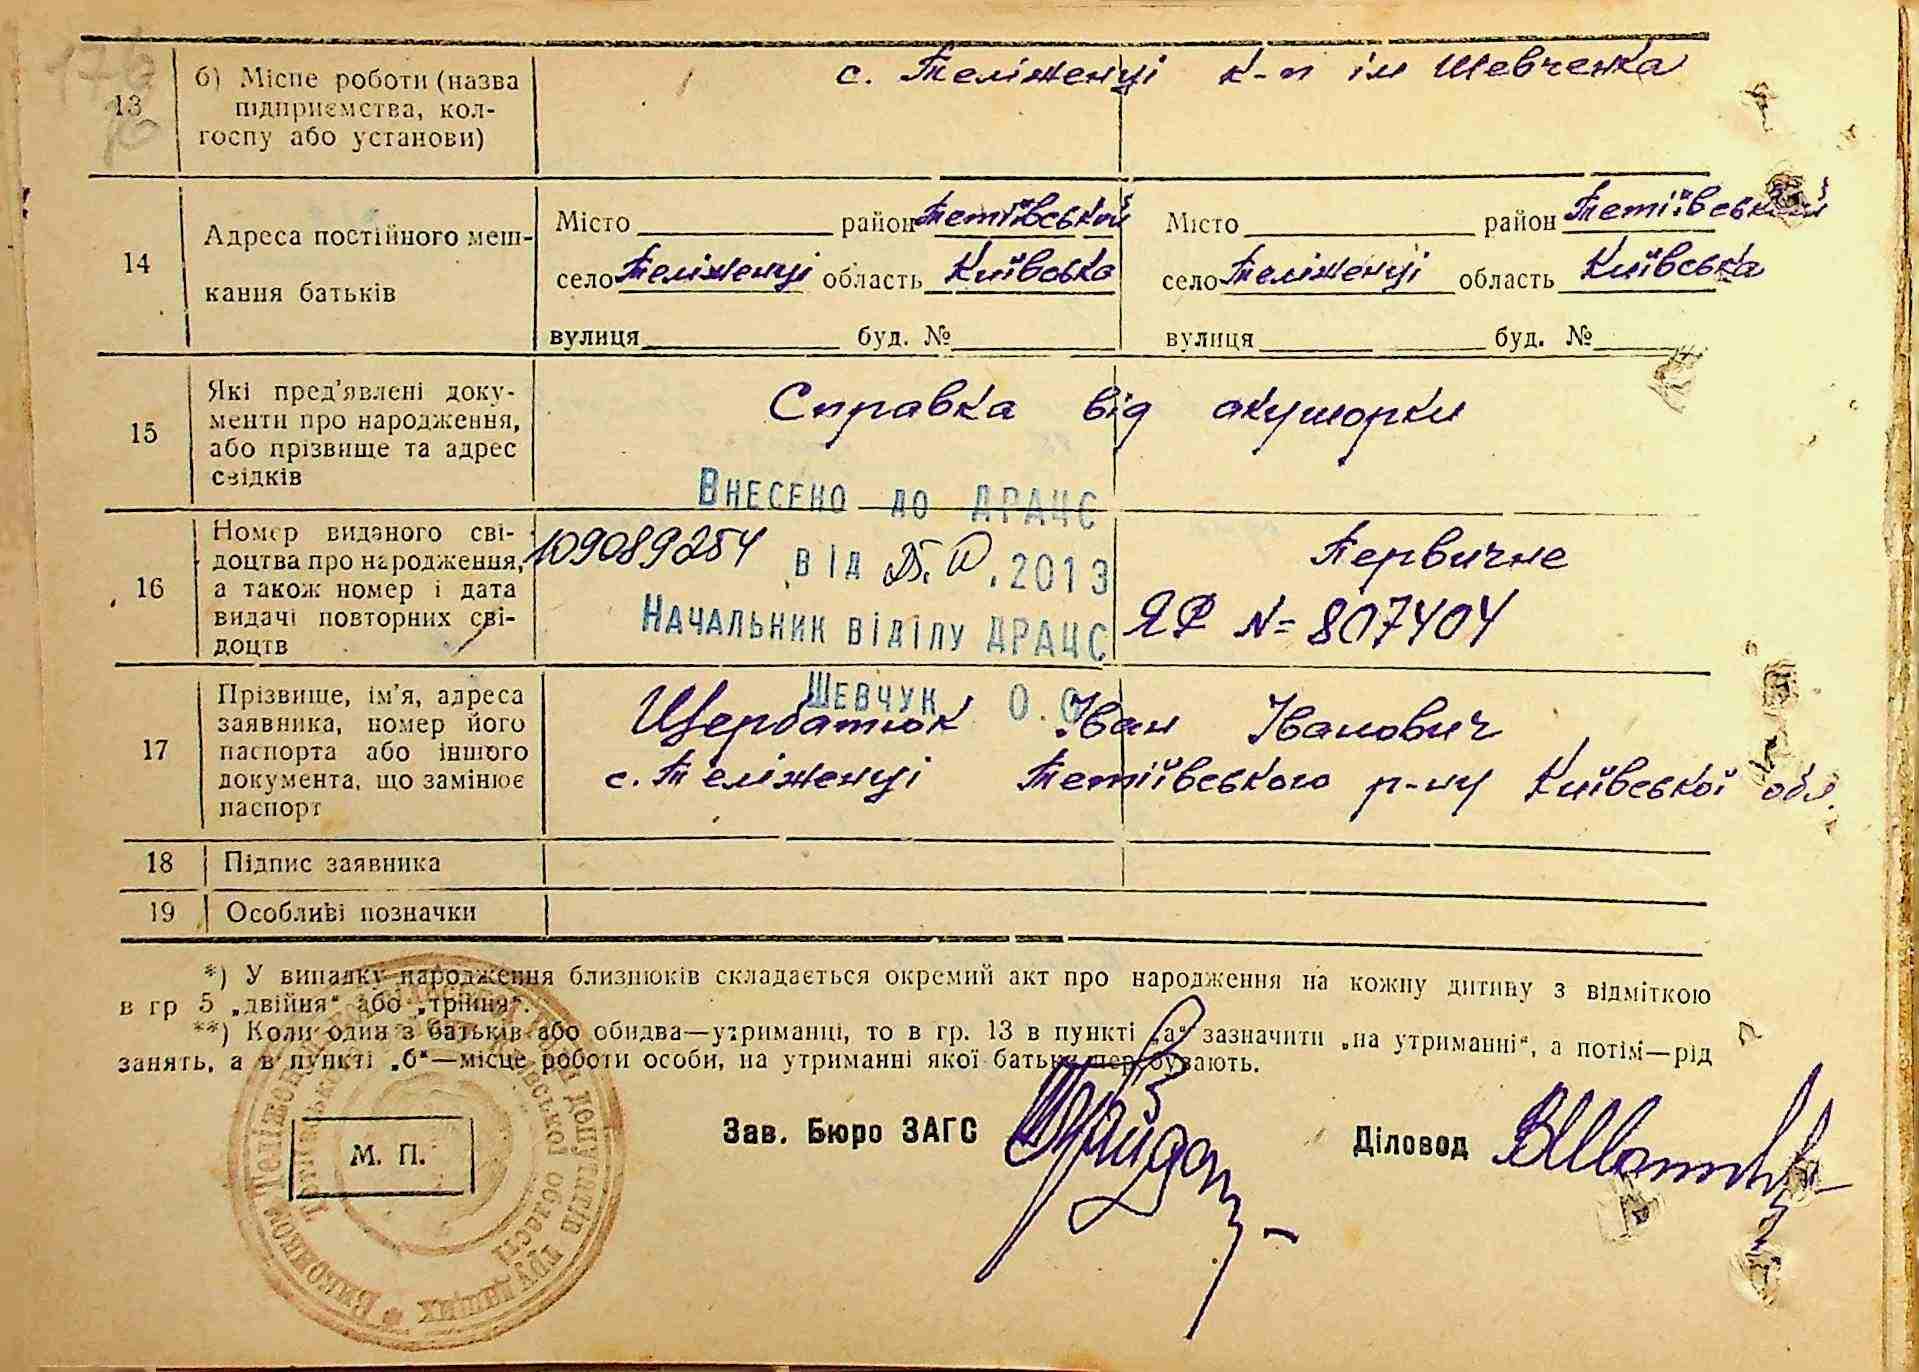 13
б) Місце роботи (назва
підприємства, кол-
госпу або установи)
с. Теліженці к-п ім Шевченка
14
Адреса постійного меш-
кання батьків
Місто район Тетіївський
село Теліженці область Київська
вулиця буд. №
Місто район Тетіївський
село Теліженці область Київська
вулиця буд. №
15
Які пред'явлені доку-
менти про народження,
або прізвище та адрес
свідків
Справка від акушорки
Внесено до ДРАЦС
від .2013
Начальник відділу ДРАЦС
Шевчук О.О
16
Номер виданого сві-
доцтва про народження,
а також номер і дата
видачі повторних сві-
доцтв
109089254
Первичне
ЯР N= 807404
17
Прізвище, ім'я, адреса
заявника, номер його
паспорта або іншого
документа, що замінює
паспорт
Щербатюк Іван Іванович
с. Теліженці Тетіївського р-ну Київської обл.
18
Підпис заявника
19
Особливі позначки
*) У випадку народження близнюків складається окремий акт про народження на кожну дитину з відміткою
в гр 5 „двійня“ або „трійня“.
**) Коли один з батьків або обидва—утриманці, то в гр. 13 в пункті „а“ зазначити „на утриманні“, а потім—рід
занять, а в пункті „б“—місце роботи особи, на утриманні якої батьки перебувають.
М. П.
Зав. Бюро ЗАГС
Діловод